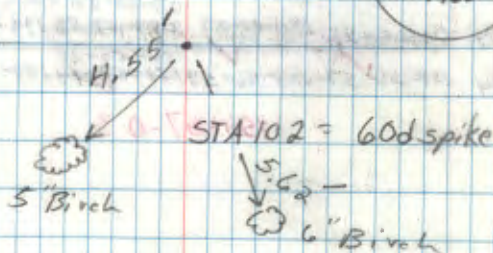 4.55'
STA 102 = 60d spike
5.62
5" Birch
6" Birch